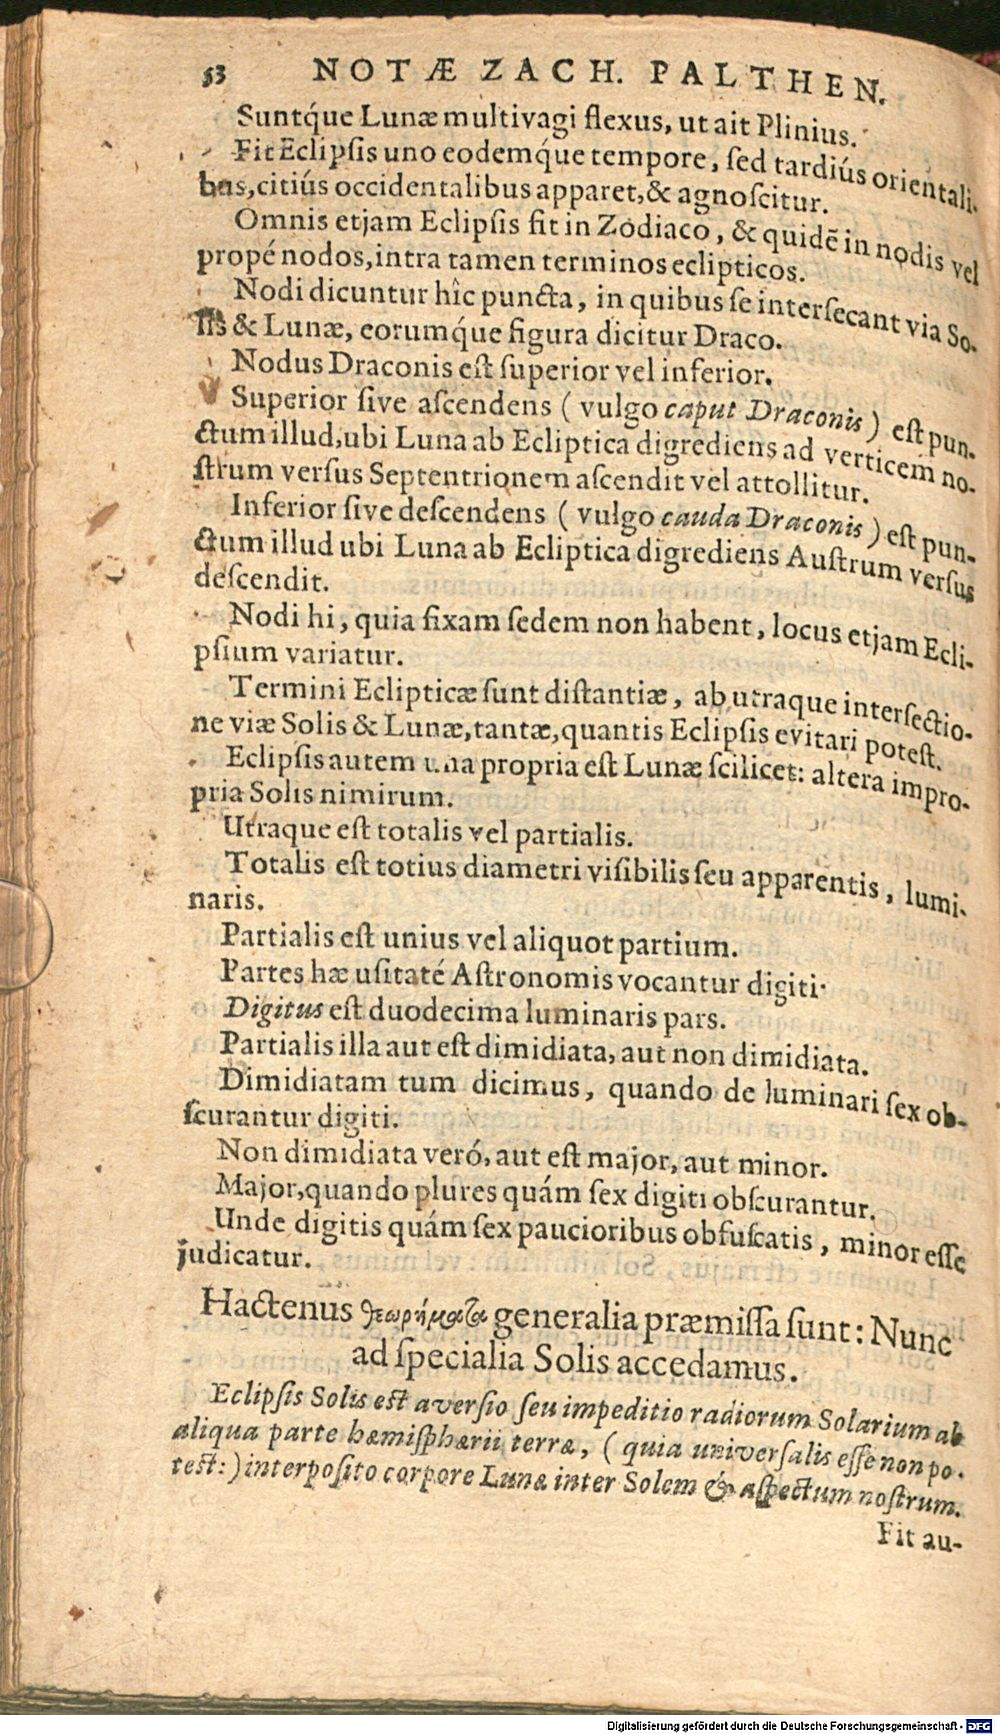 53 NOTÆ ZACH. PALTHEN.
Suntq́ue Lunæ multivagi flexus, ut ait Plinius.
Fit Eclipſis uno eodemq́ue tempore, ſed tardiús orientali-
bus, citiús occidentalibus apparet, & agnoſcitur.
Omnis etjam Eclipſis fit in Zodiaco, & quidē in nodis vel
propé nodos, intra tamen terminos eclipticos.
Nodi dicuntur hîc puncta, in quibus ſe interſecant via So-
lis & Lunæ, eorumq́ue figura dicitur Draco.
Nodus Draconis eſt ſuperior vel inferior.
Superior ſive aſcendens ( vulgo caput Draconis ) eſt pun-
ctum illud, ubi Luna ab Ecliptica digrediens ad verticem no-
ſtrum verſus Septentrionem aſcendit vel attollitur.
Inferior ſive deſcendens ( vulgo cauda Draconis ) eſt pun-
ctum illud ubi Luna ab Ecliptica digrediens Auſtrum verſus
deſcendit.
Nodi hi, quia fixam ſedem non habent, locus etjam Ecli-
pſium variatur.
Termini Eclipticæ ſunt diſtantiæ, ab utraque interſectio-
ne viæ Solis & Lunæ, tantæ, quantis Eclipſis evitari poteſt.
Eclipſis autem una propria eſt Lunæ ſcilicet: altera impro-
pria Solis nimirum.
Utraque eſt totalis vel partialis.
Totalis eſt totius diametri viſibilis ſeu apparentis, lumi-
naris.
Partialis eſt unius vel aliquot partium.
Partes hæ uſitaté Aſtronomis vocantur digiti·
Digitus eſt duodecima luminaris pars.
Partialis illa aut eſt dimidiata, aut non dimidiata.
Dimidiatam tum dicimus, quando de luminari ſex ob-
ſcurantur digiti.
Non dimidiata veró, aut eſt major, aut minor.
Major, quando plures quám ſex digiti obſcurantur.
Unde digitis quám ſex paucioribus obfuſcatis, minor eſſe
judicatur.
Hactenus θεωρήματα generalia præmiſſa ſunt: Nunc
ad ſpecialia Solis accedamus.
Eclipſis Solis eſt averſio ſeu impeditio radiorum Solarium ab
aliqua parte hæmiſphærii terræ, ( quia univerſalis eſſe non po-
teſt: ) interpoſito corpore Lunæ inter Solem & aſpectum noſtrum.
Fit au-
Digitalisierung gefördert durch die Deutsche Forschungsgemeinschaft - DFG